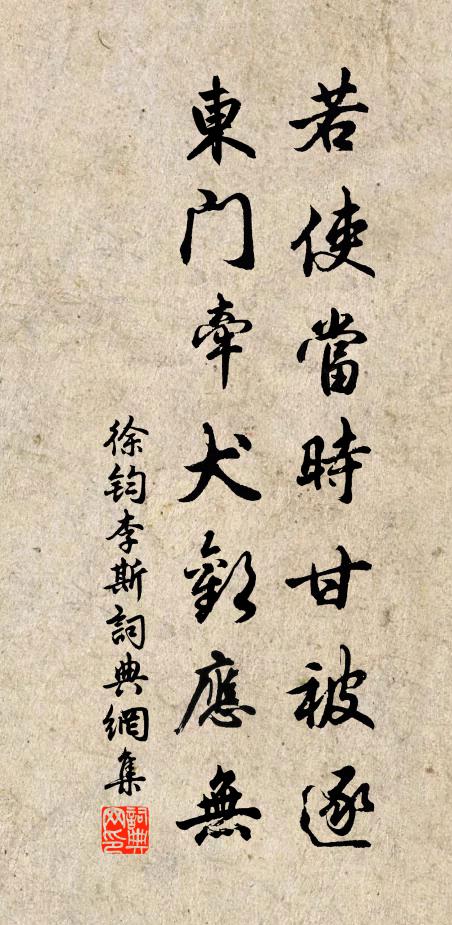 若使當時甘被逐
東門牽犬歎應無
徐鈞李斯詞典網集
詞典网印